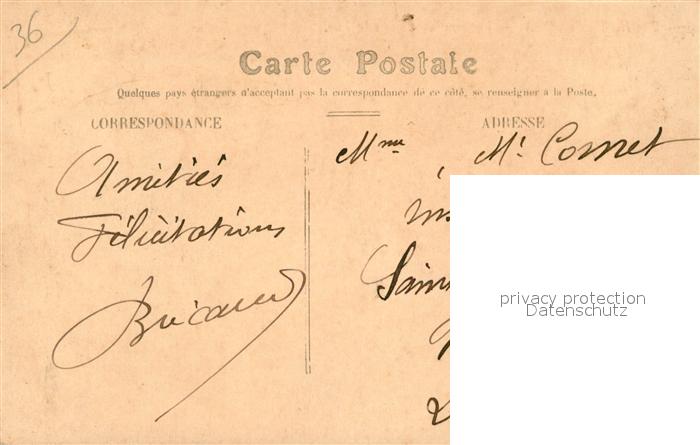 36
Carte Postale
Quelques pays étrangers n'acceptant pas la correspondance de ce côté, se renseigner à la Poste.
CORRESPONDANCE
ADRESSE
Amitiés
Félicitations
Mme Mr Cornet
privacy protection
Datenschutz